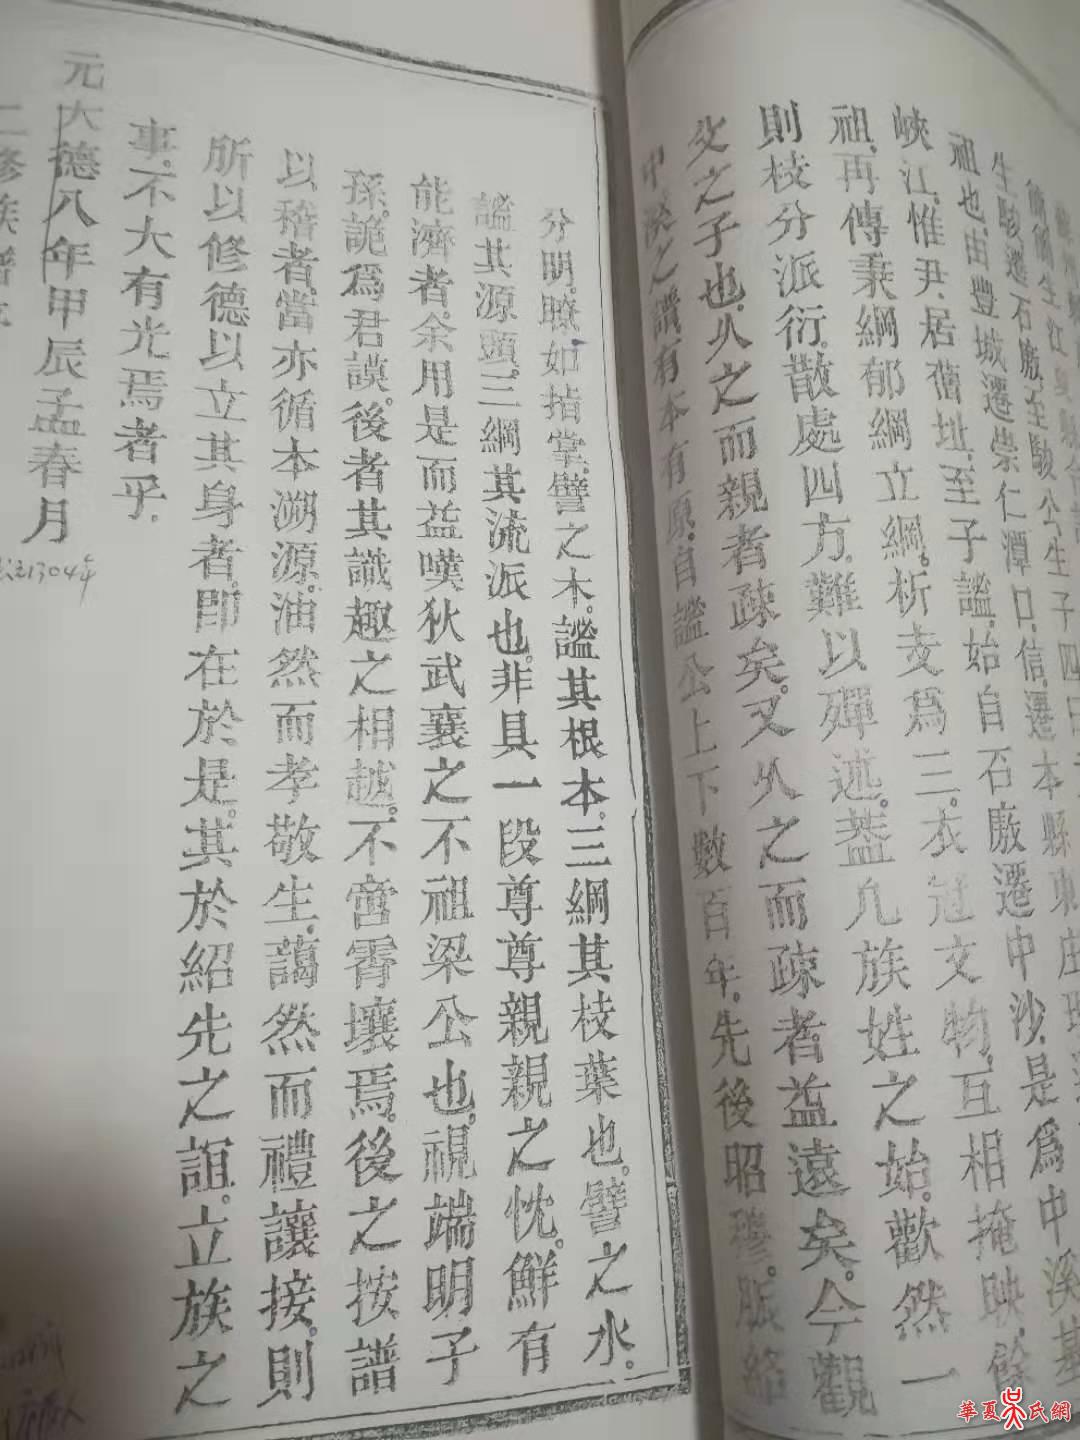 簡簡生江
生駿遷石廒至駿公生子四曰
祖也由豐城遷崇仁潭口信遷本縣東庄
峽江惟尹居舊址至子謐始自石廒遷中沙是為中溪基
祖再傳秉綱郁綱立綱析支為三衣冠文物互相掩映餘
則枝分派衍散處四方難以殫述蓋凡族姓之始歡然一
父之子也久之而親者疎矣又久之而疎者益遠矣今觀
中溪之譜有本有原自謐公上下數百年先後昭穆脈絡
分明瞭如指掌譬之木謐其根本三綱其枝葉也譬之水
謐其源頭三綱其流派也非具一段尊尊親親之忱鮮有
能濟者余用是而益嘆狄武襄之不祖梁公也視端明子
孫詭為君謨後者其識趣之相越不啻霄壤焉後之按譜
以稽者當亦循本溯源油然而孝敬生藹然而禮讓接則
所以修德以立其身者即在於是其於紹先之誼立族之
事不大有光焉者乎
元大德八年甲辰孟春月
1304年
二修族譜
華夏吳氏網